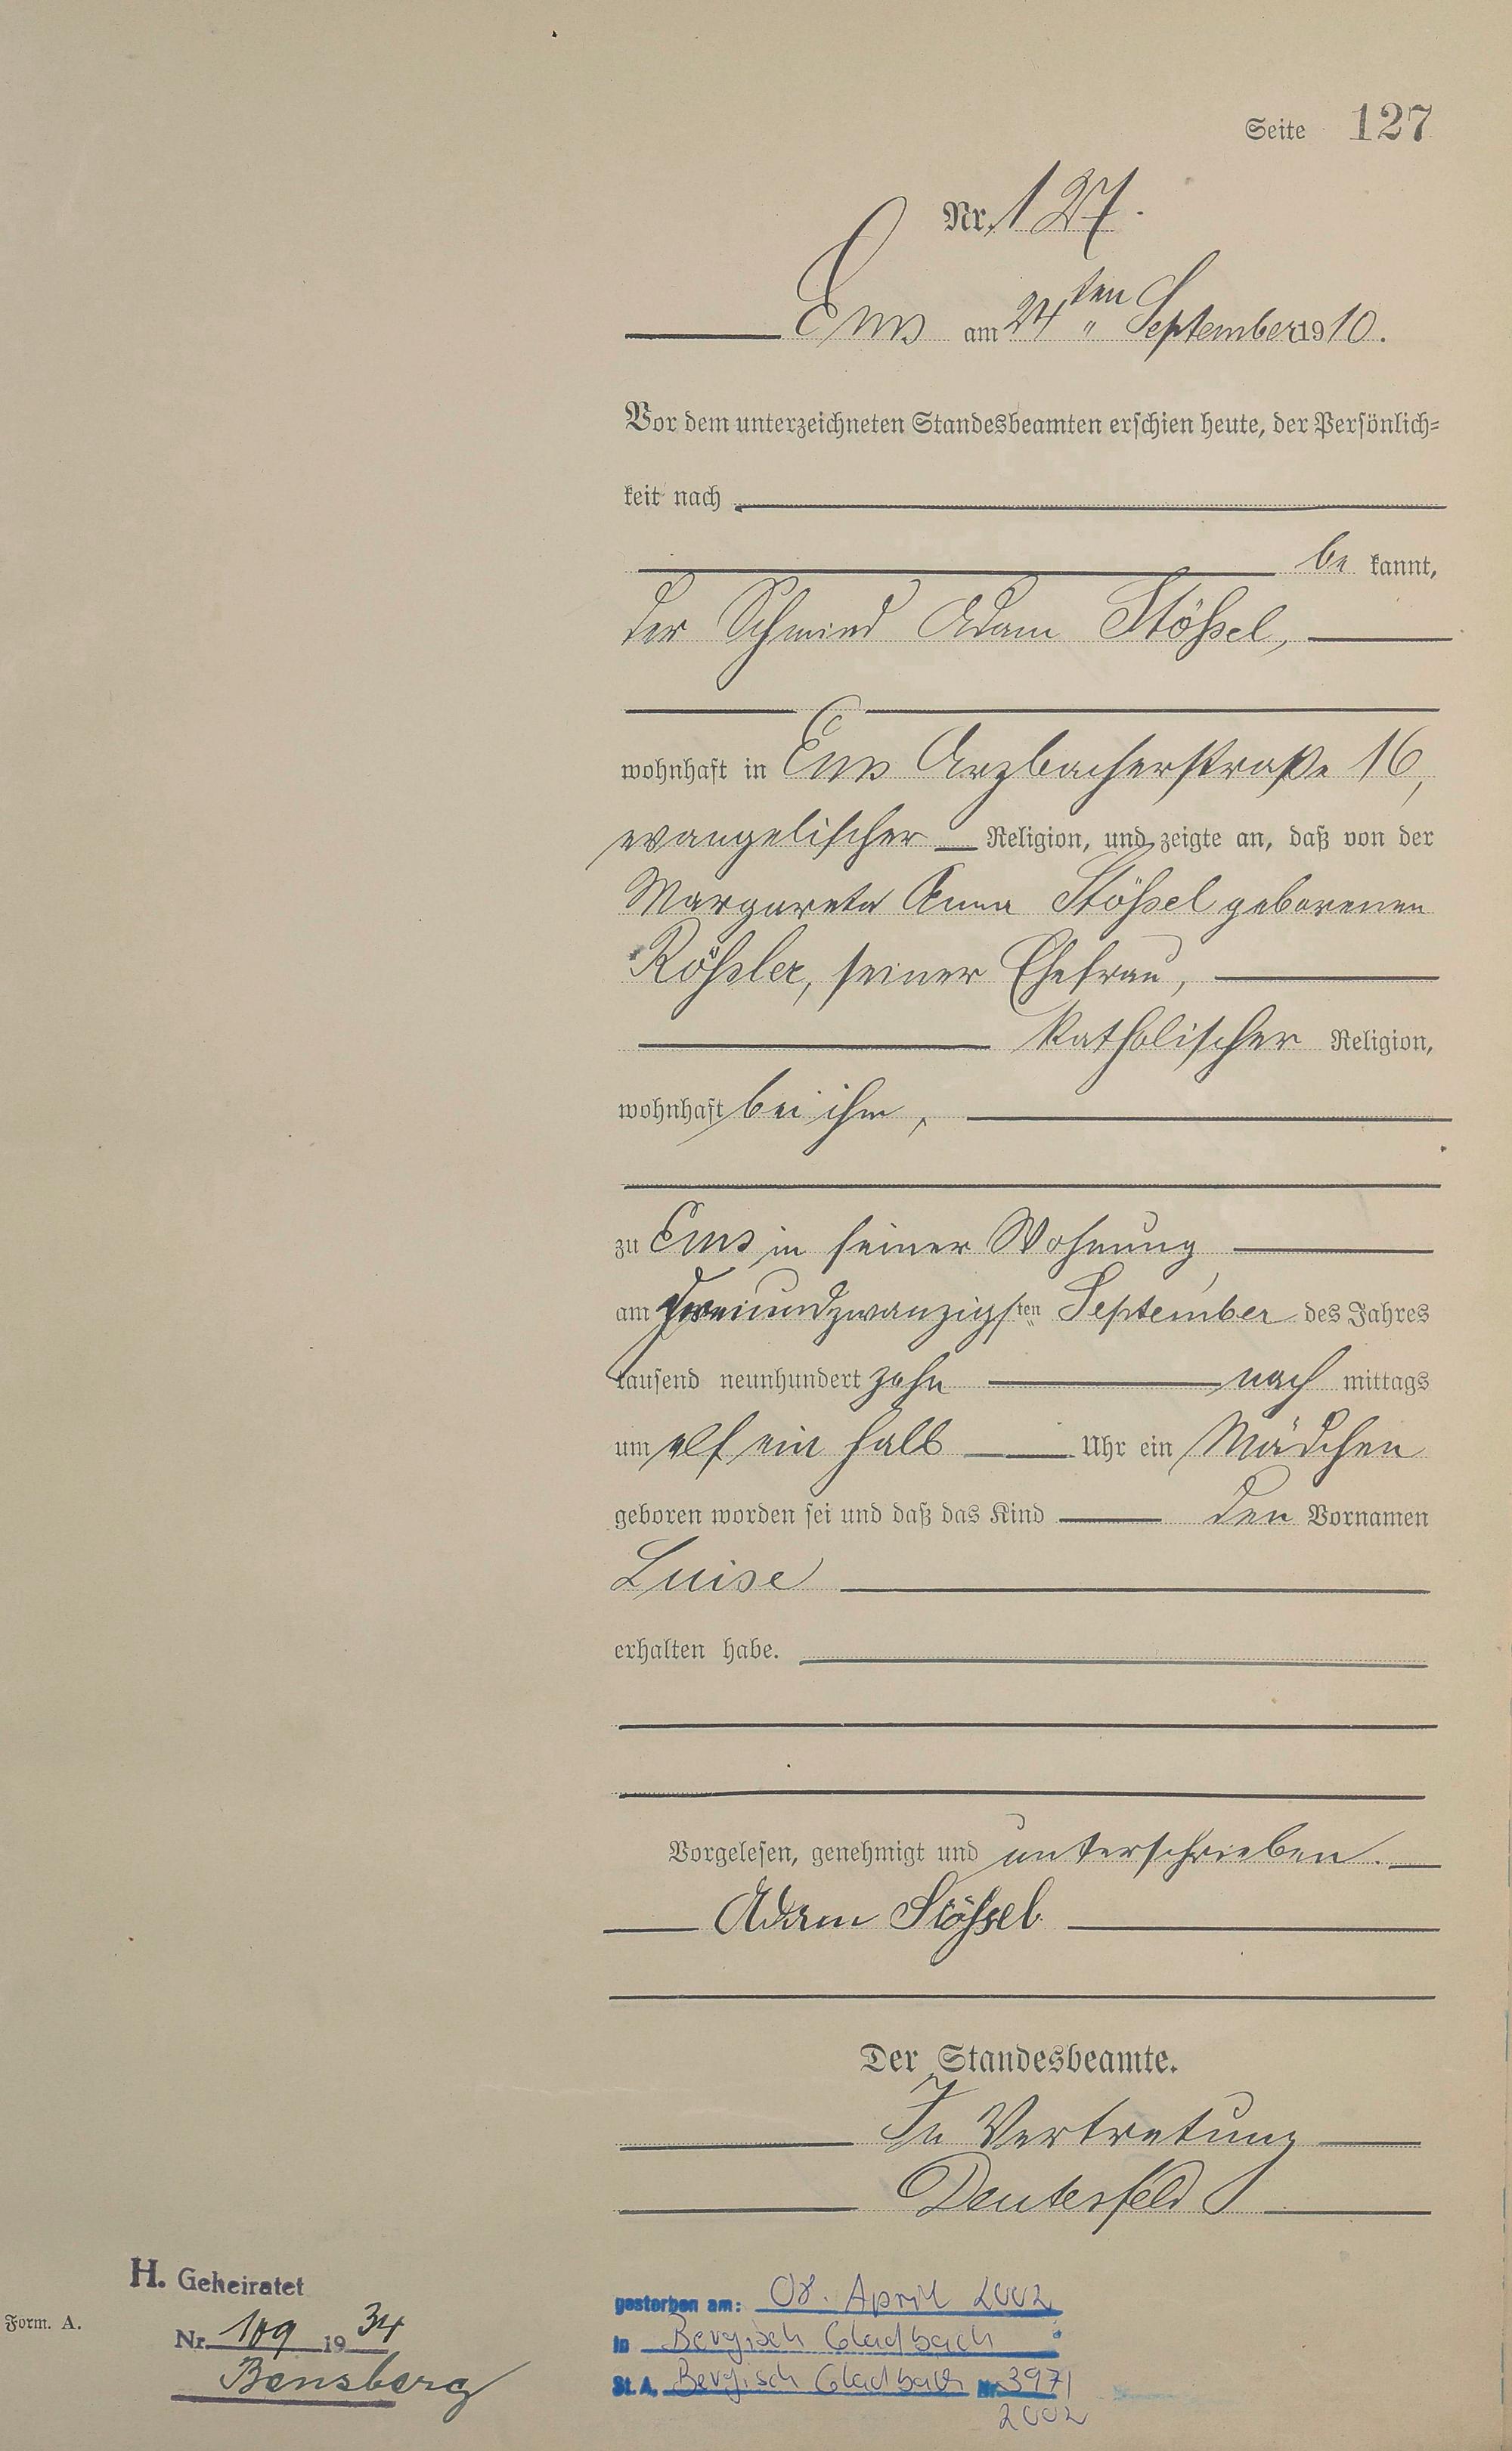 Seite 127
Nr. 127.
Ems am 24ten September 1910.
Vor dem unterzeichneten Standesbeamten erschien heute, der Persönlich-
keit nach
be kannt,
der Schmied Adam Stößel,
wohnhaft in Ems Arzbacherstraße 16,
evangelischer Religion, und zeigte an, daß von der
Margareta Anna Stößel geborenen
Rößler, seiner Ehefrau,
katholischer Religion,
wohnhaft bei ihm,
zu Ems in seiner Wohnung,
am undzwanzigsten September des Jahres
tausend neunhundert zehn nach mittags
um elf ein halb Uhr ein Mädchen
geboren worden sei und daß das Kind den Vornamen
Luise
erhalten habe.
Vorgelesen, genehmigt und unterschrieben.
Adam Stößel
Der Standesbeamte.
In Vertretung
H. Geheiratet
Form. A.
Nr. 109 1934
Bensberg
gestorben am: 08. April 2002
in Bergisch Gladbach
St. A. Bergisch Gladbach Nr. 397/
2002